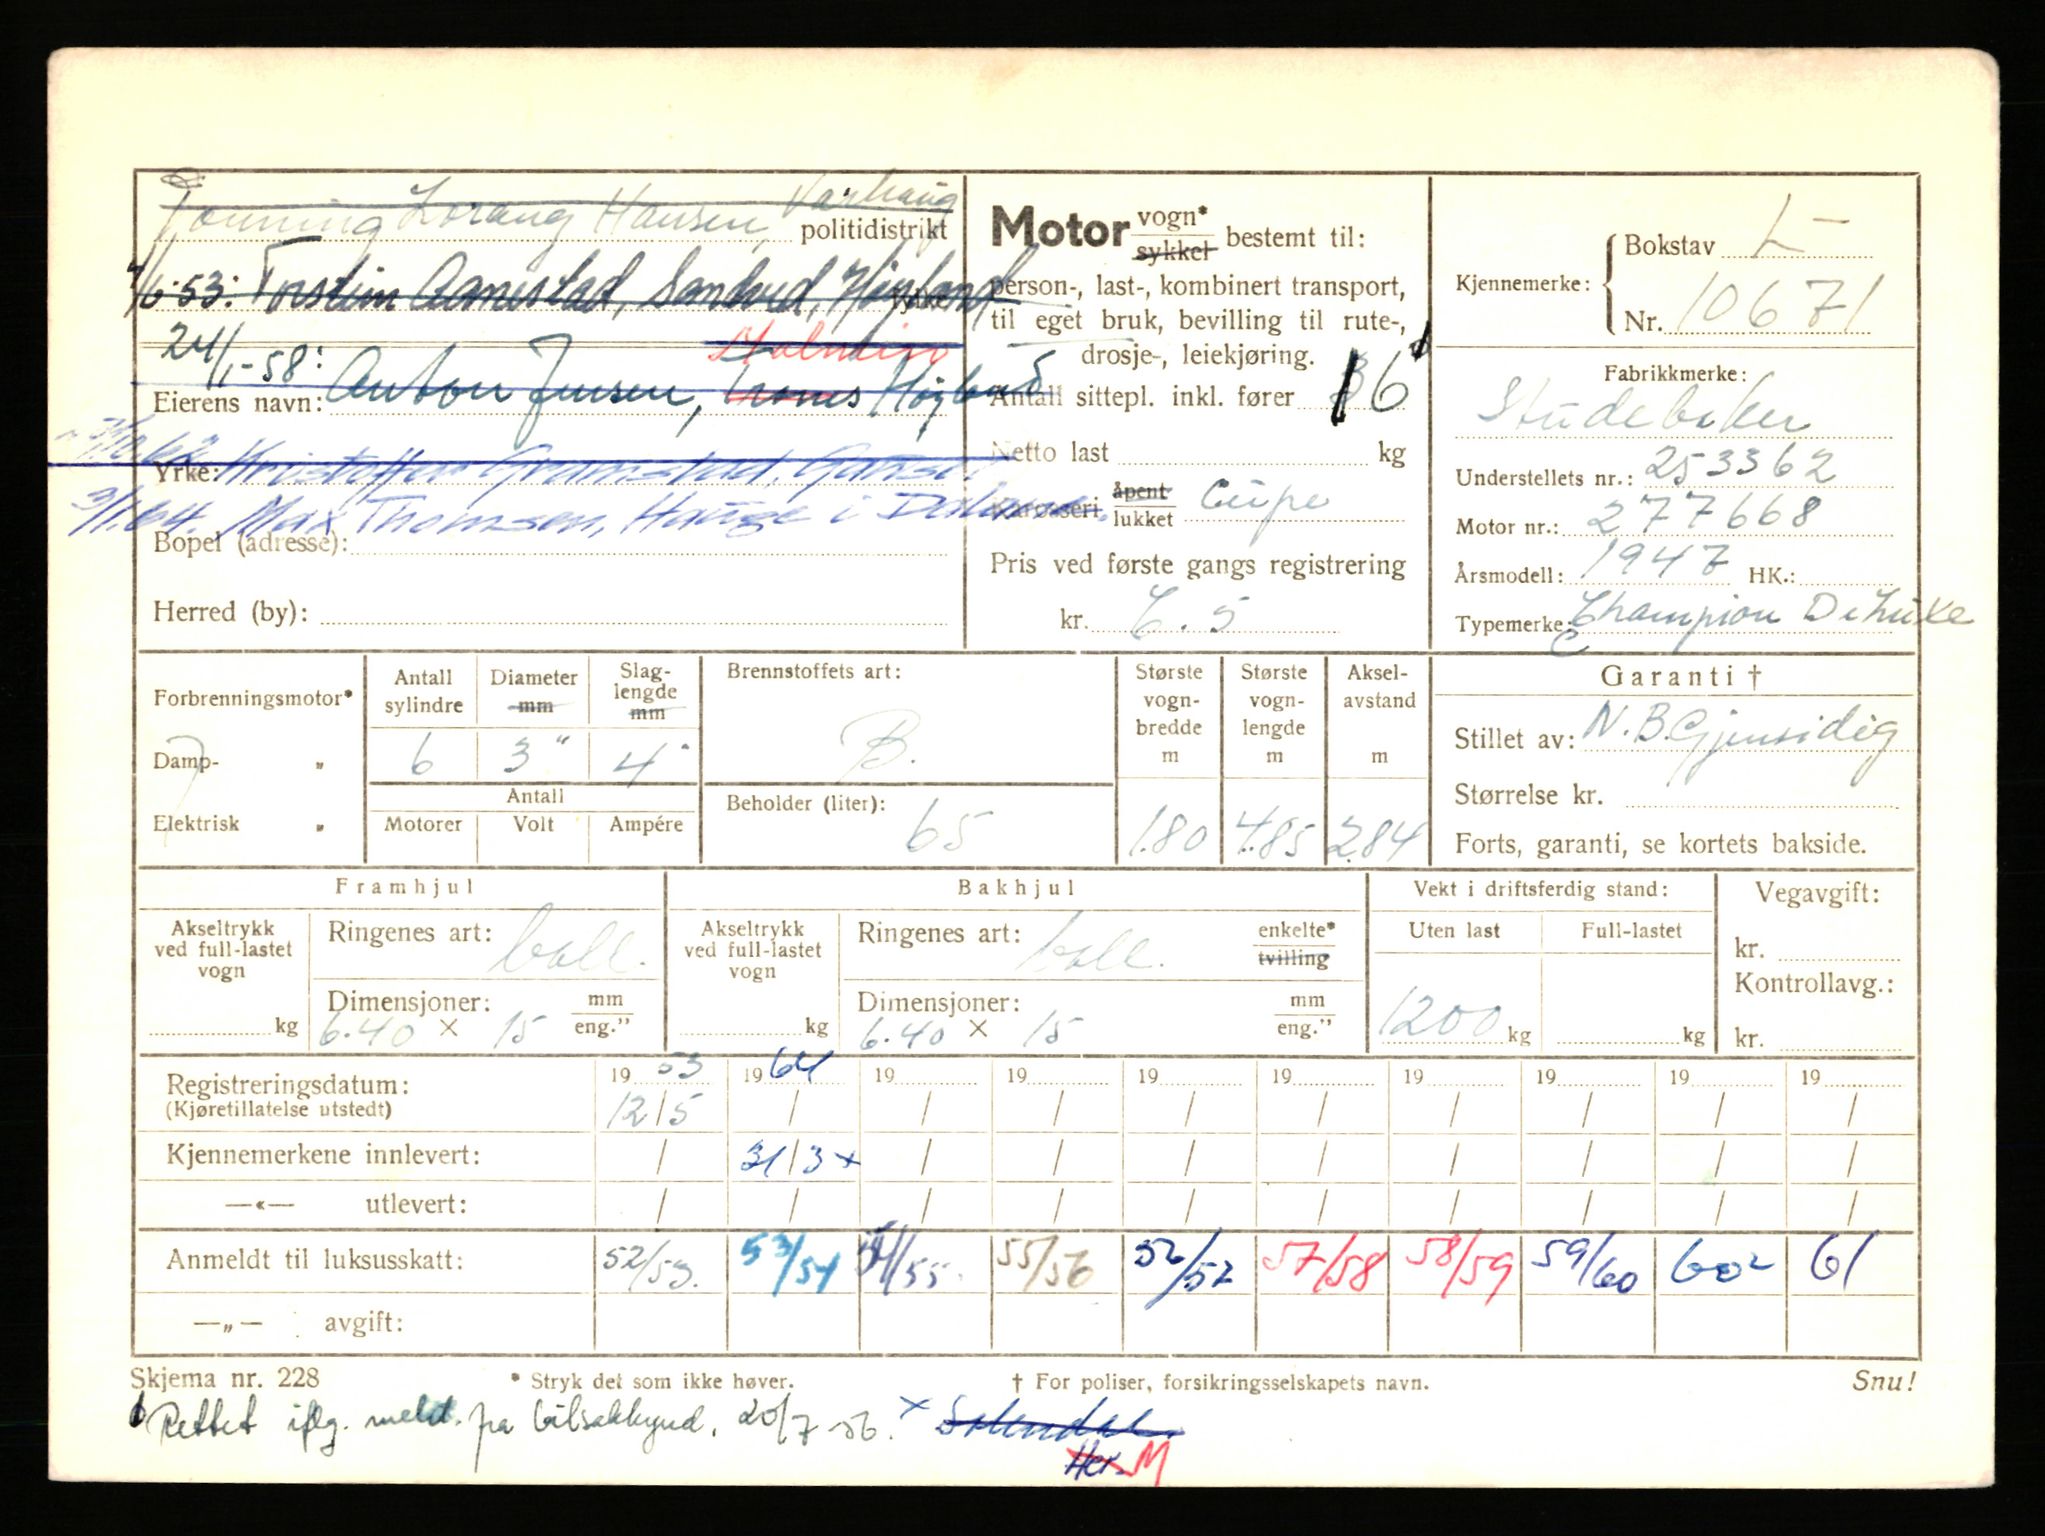 Tonning Lorang Hansen, Varhaug
politidistrikt
4/6-53: Torstein Aanestad, Sandved, Høyland
yrke
24/1-58: Malmein
Eierens navn: Anton Jensen, Høyland
Yrke: Kristoffer Gramstad, Gansel
3/1.64 Max Thomsen, Hauge i Dalane.
Bopel (adresse):
Herred (by):
Motor vogn* sykkel bestemt til:
person-, last-, kombinert transport,
til eget bruk, bevilling til rute-,
drosje-, leiekjøring.
Antall sittepl. inkl. fører 6
Netto last kg
Karosseri åpent lukket Cupe
Pris ved første gangs registrering
kr. C. 5
Kjennemerke: Bokstav L-
Nr. 10671
Fabrikkmerke:
Studebaker
Understellets nr.: 253362
Motor nr.: 277668
Årsmodell: 1947 HK.:
Typemerke: Champion De Luxe
Forbrenningsmotor*
Damp- „
Elektrisk „
Antall sylindre 6
Diameter mm 3"
Slag-lengde mm 4"
Antall
Motorer Volt Ampére
Brennstoffets art:
B.
Beholder (liter): 65
Største vogn-bredde m 1.80
Største vogn-lengde m 4.85
Aksel-avstand m 2.84
Garanti †
Stillet av: N.B. Gjensidig
Størrelse kr.
Forts, garanti, se kortets bakside.
Framhjul
Akseltrykk ved full-lastet vogn
kg
Ringenes art: ball.
Dimensjoner: mm eng."
6.40 × 15
Bakhjul
Akseltrykk ved full-lastet vogn
kg
Ringenes art: ball. enkelte* tvilling
Dimensjoner: mm eng."
6.40 × 15
Vekt i driftsferdig stand:
Uten last Full-lastet
1200 kg kg
Vegavgift:
kr.
Kontrollavg.:
kr.
Registreringsdatum: 19 53 19 64 19 19 19 19 19 19 19 19
(Kjøretillatelse utstedt) 12/5 / / / / / / / / /
Kjennemerkene innlevert: / 31/3 x / / / / / / / /
—«— utlevert: / / / / / / / / / /
Anmeldt til luksusskatt: 52/53. 53/54 54/55. 55/56 56/57 57/58 58/59 59/60 602 61
—„— avgift:
Skjema nr. 228 * Stryk det som ikke høver. † For poliser, forsikringsselskapets navn. Snu!
Rettet iflg. meld. fra bilsakkynd. 20/7-56. x
Her. M